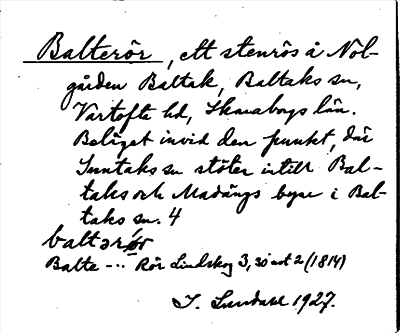 Balterör, ett stenrös å Nol-
gården Baltak, Baltaks sn,
Vartofte hd, Skaraborgs län.
Beläget invid den punkt, där
Suntaks sn stöter intill Bal-
taks och Madängs byar i Bal-
taks sn. 4
baltərör
Balte --- Rör Lindskog 3, 30 not 2 (1814)
I. Lundahl 1927.